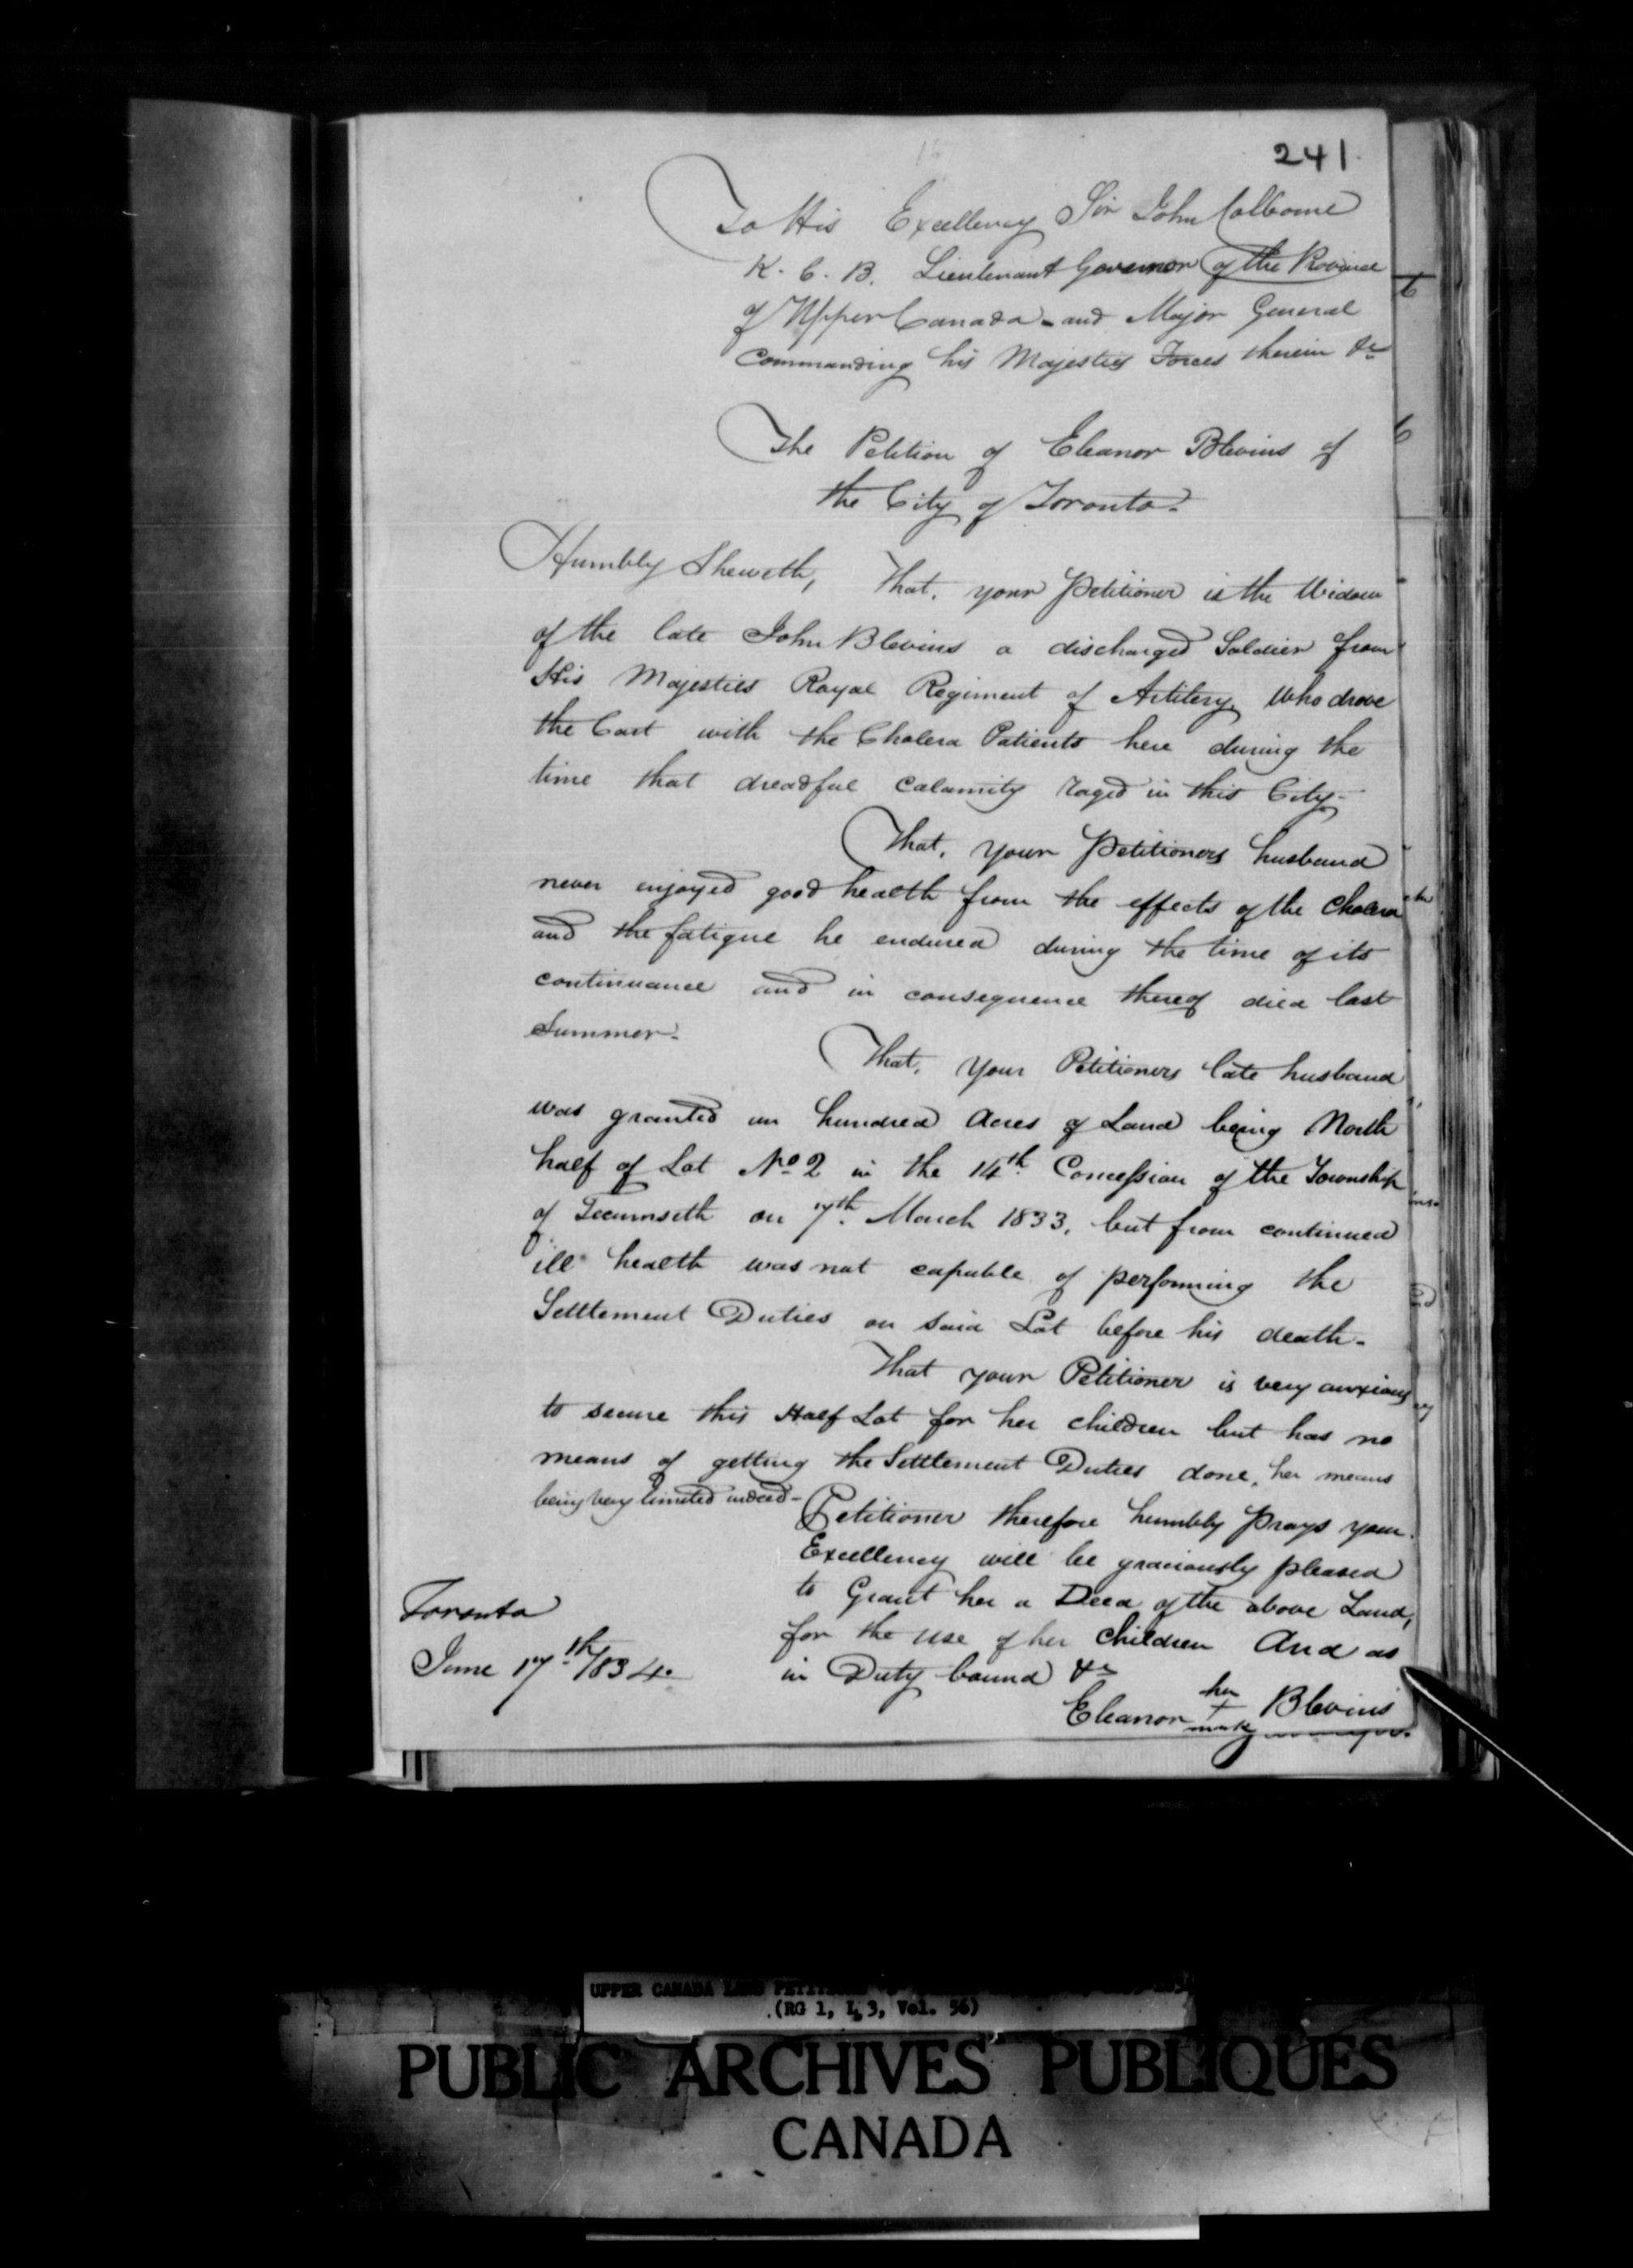 241.
To His Excellency Sir John Colborne
K. C. B. Lieutenant Governor of the Province
of Upper Canada - and Major General
Commanding his Majesties Forces therein &c
The Petition of Eleanor Blevins of
the City of Toronto.
Humbly Sheweth, That, your Petitioner is the Widow
of the late John Blevins a discharged Soldier from
His Majesties Royal Regiment of Artilery, Who drove
the Cart with the Cholera Patients here during the
time that dreadful calamity raged in this City-
That, your Petitioners husband
never enjoyed good health from the effects of the Cholera
and the fatigue he endured during the time of its
continuance and in consequence thereof died last
Summer.
That, your Petitioners late husband
was granted an hundred Acres of Land being North
half of Lot No 2 in the 14th. Concession of the Township
of Tecumseth on 7th. March 1833, but from continued
ill health was not capable of performing the
Settlement Duties on said Lot before his death-
That your Petitioner is very anxious
to secure this Half Lot for her children but has no
means of getting the Settlement Duties done, her means
being very limited indeed-
Petitioner therefore humbly prays your
Excellency will be graciously pleased
to Grant her a Deed of the above Land,
for the use of her Children And as
in Duty bound &c
Toronto
June 17th. 1834.
her
Eleanor + Blevins
mark
UPPER CANADA LAND PETITIONS
(RG 1, L 3, Vol. 56)
PUBLIC ARCHIVES PUBLIQUES
CANADA